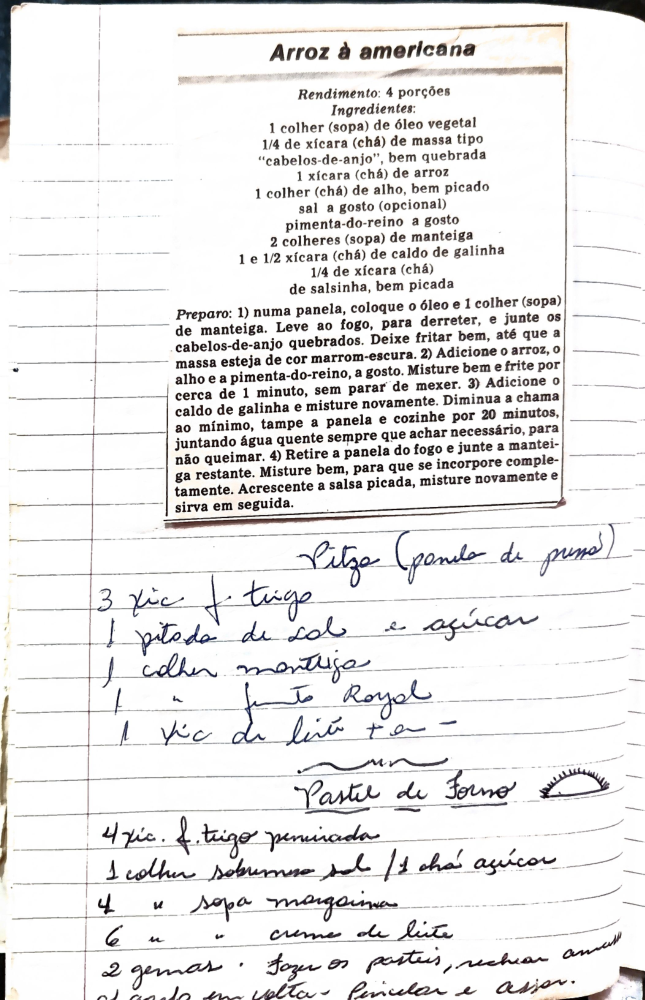 Arroz à americana
Rendimento: 4 porções
Ingredientes:
1 colher (sopa) de óleo vegetal
1/4 de xícara (chá) de massa tipo
“cabelos-de-anjo”, bem quebrada
1 xícara (chá) de arroz
1 colher (chá) de alho, bem picado
sal a gosto (opcional)
pimenta-do-reino a gosto
2 colheres (sopa) de manteiga
1 e 1/2 xícara (chá) de caldo de galinha
1/4 de xícara (chá)
de salsinha, bem picada
Preparo: 1) numa panela, coloque o óleo e 1 colher (sopa)
de manteiga. Leve ao fogo, para derreter, e junte os
cabelos-de-anjo quebrados. Deixe fritar bem, até que a
massa esteja de cor marrom-escura. 2) Adicione o arroz, o
alho e a pimenta-do-reino, a gosto. Misture bem e frite por
cerca de 1 minuto, sem parar de mexer. 3) Adicione o
caldo de galinha e misture novamente. Diminua a chama
ao mínimo, tampe a panela e cozinhe por 20 minutos,
juntando água quente sempre que achar necessário, para
não queimar. 4) Retire a panela do fogo e junte a mantei-
ga restante. Misture bem, para que se incorpore comple-
tamente. Acrescente a salsa picada, misture novamente e
sirva em seguida.
Pitza (panela de pressá)
3 xic f. trigo
1 pitada de sal e açúcar
1 colher manteiga
1 " Royal
1 xic de leite + ou -
Pastel de Forno
4 xic. f. trigo peneirada
1 colher sobremesa sal / 1 chá açúcar
4 " sopa margarina
6 " " creme de leite
2 gemas. Fazer os pasteis, rechear
em volta. Pincelar e assar.